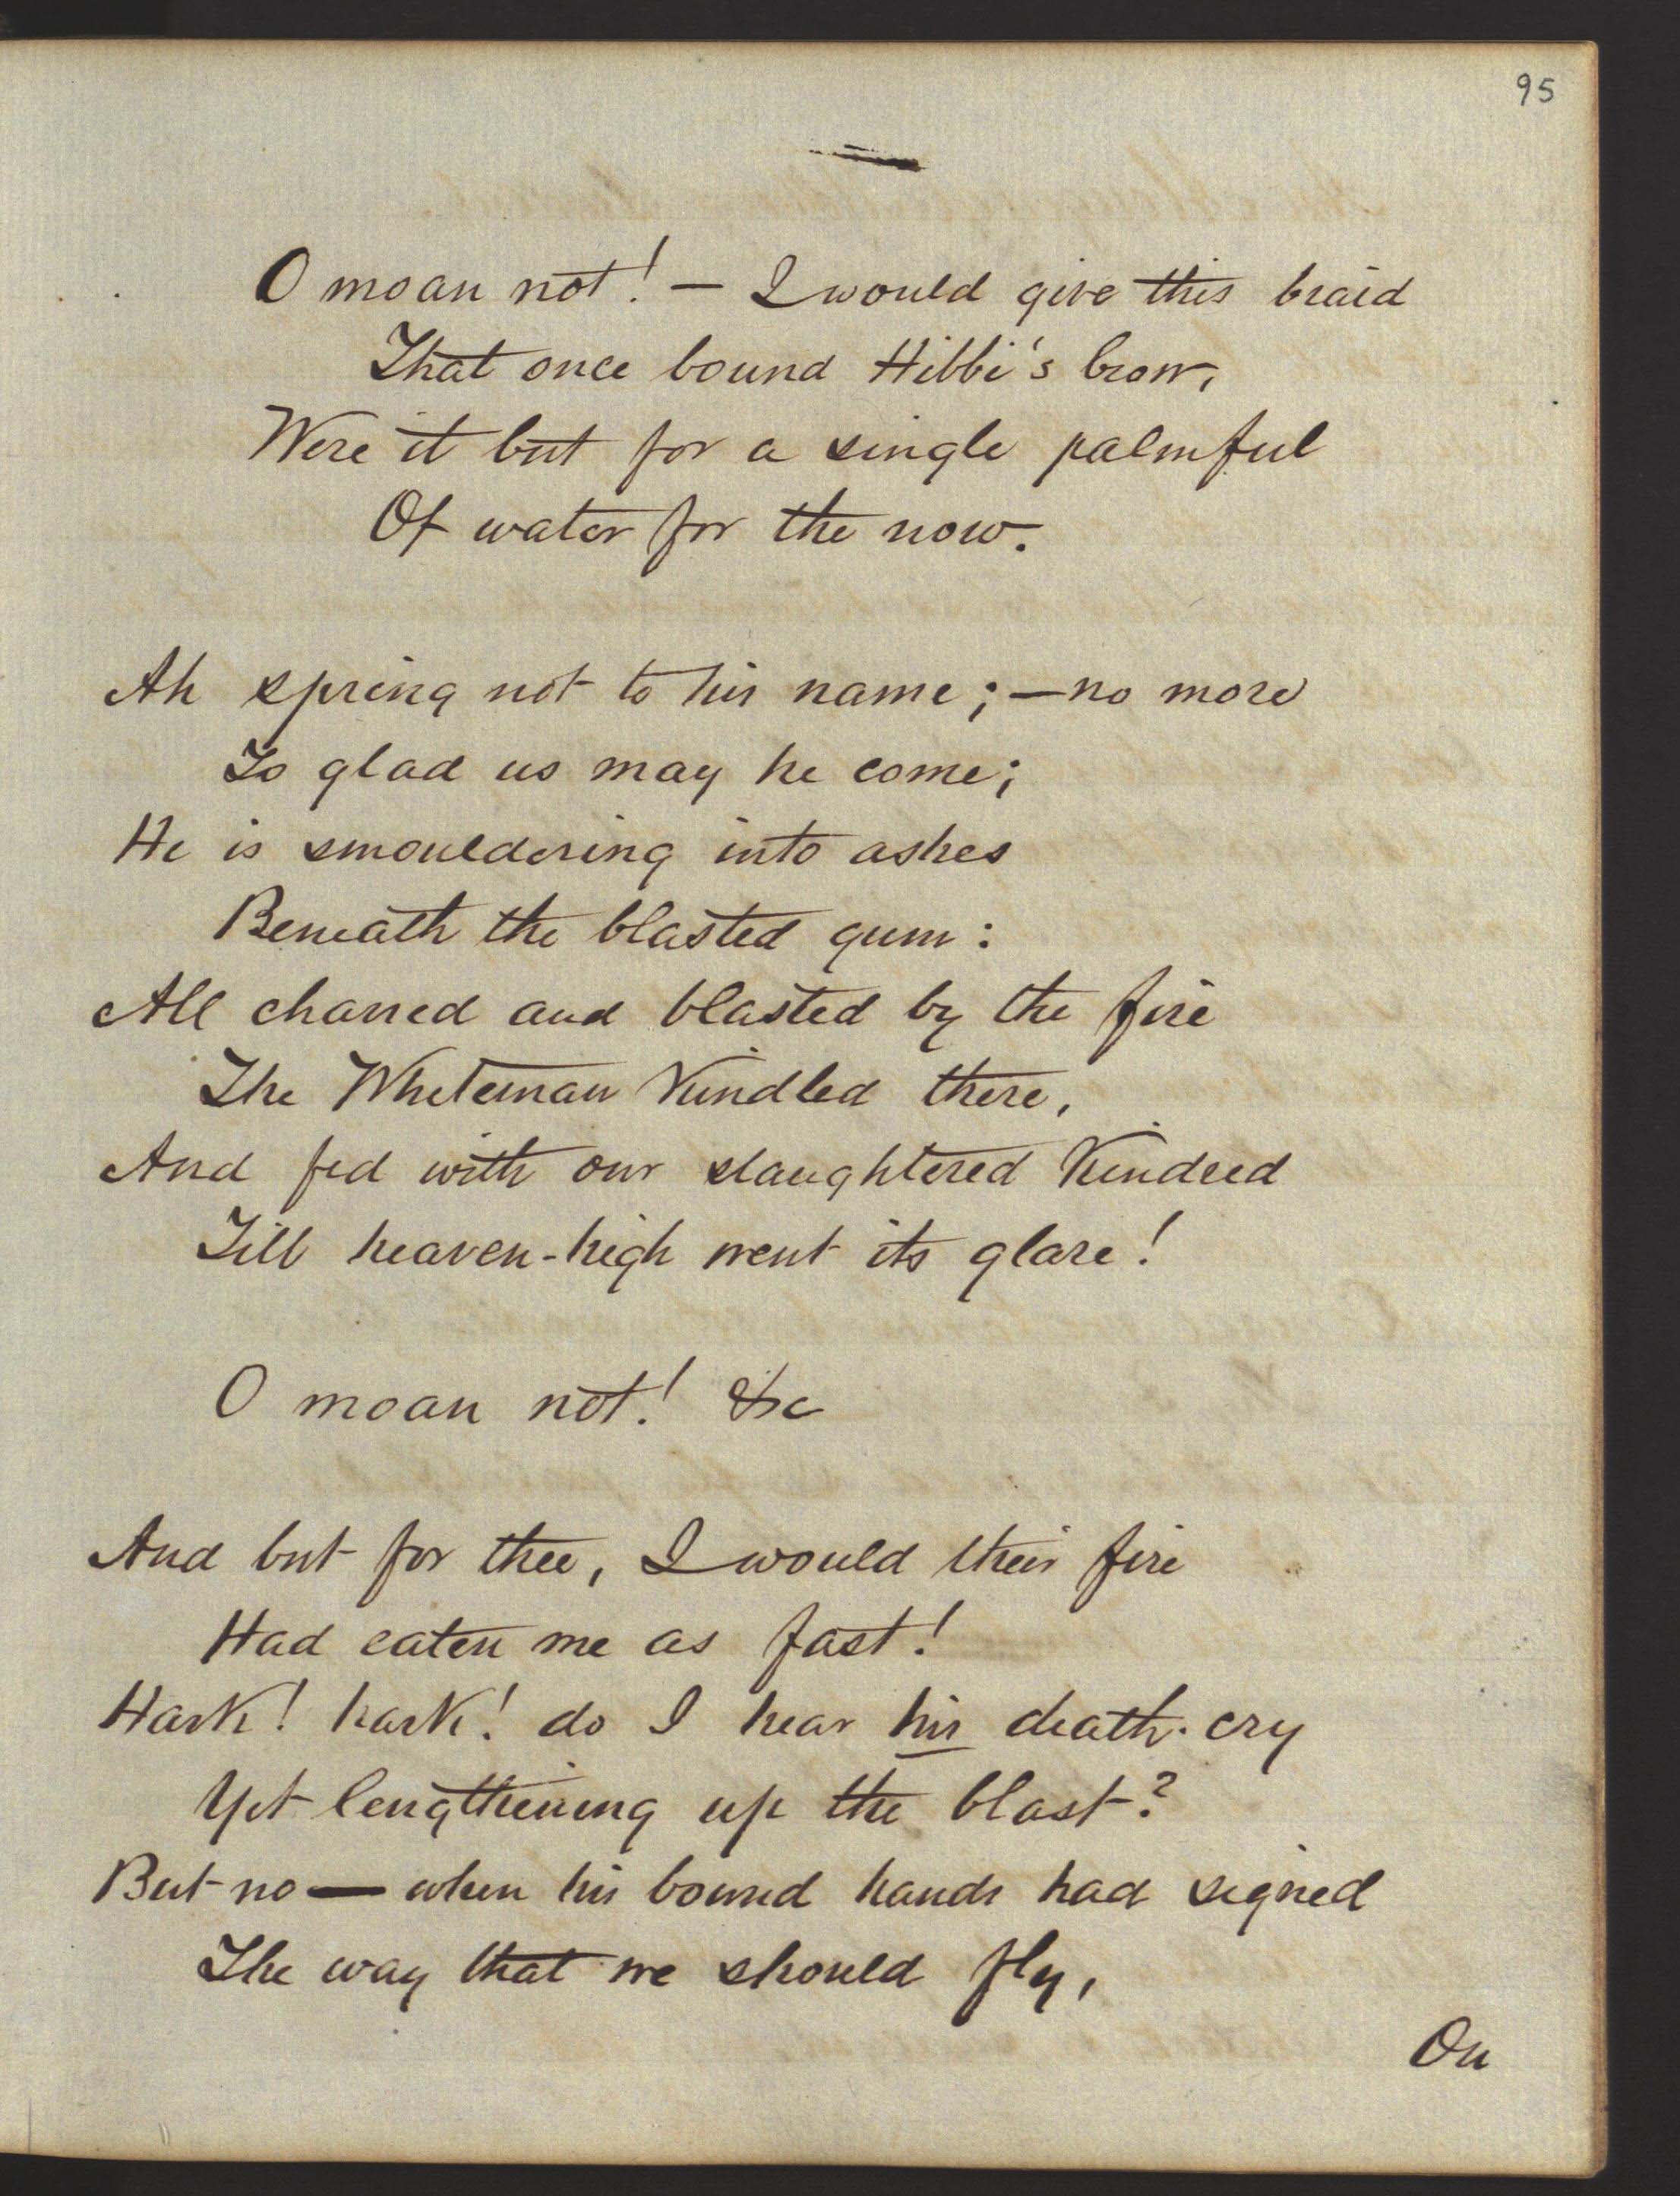 95
O moan not! — I would give this braid
That once bound Hibbi's brow,
Were it but for a single palmful
Of water for the now.
Ah spring not to his name; — no more
To glad us may he come;
He is smouldering into ashes
Beneath the blasted gum:
All charred and blasted by the fire
The Whiteman Kindled there,
And fed with our slaughtered Kindred
Till heaven-high went its glare!
O moan not! &c
And but for thee, I would their fire
Had eaten me as fast!
Hark! hark! do I hear his death-cry
Yet lengthening up the blast?
But no — when his bound hands had signed
The way that we should fly,
On